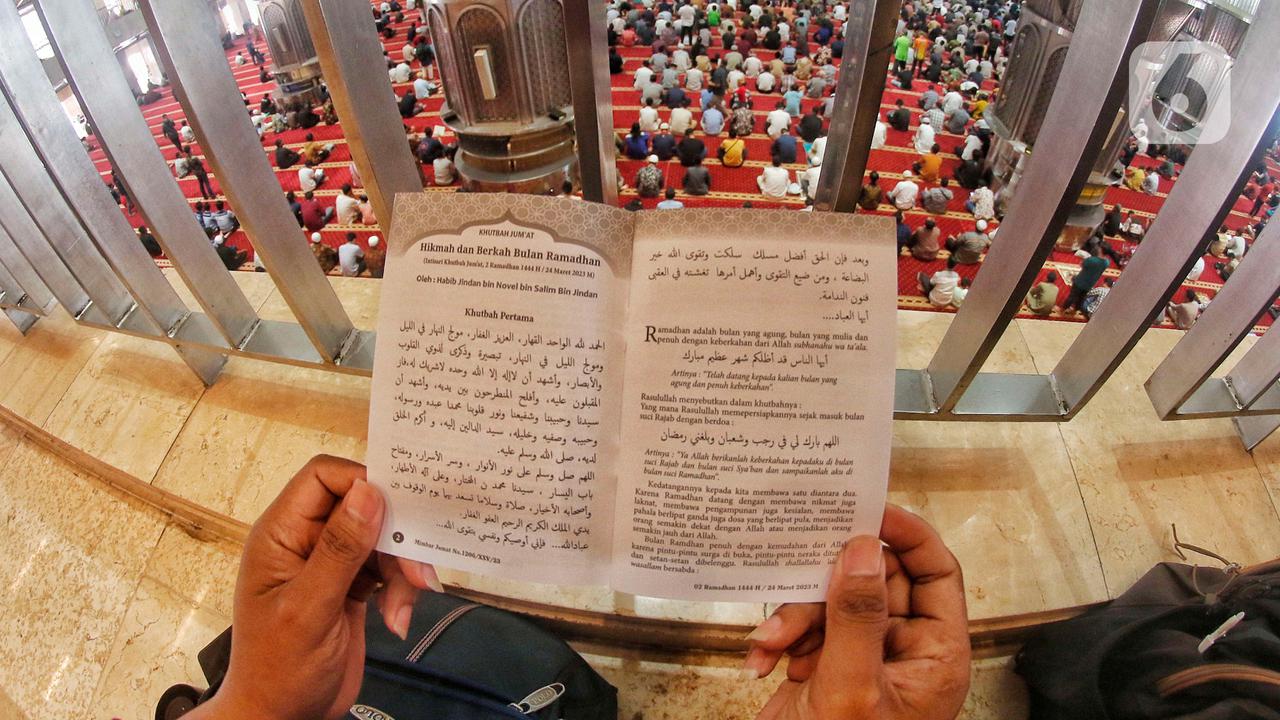 KHUTBAH JUM'AT
Hikmah dan Berkah Bulan Ramadhan
(Intisari Khutbah Jum'at, 2 Ramadhan 1444 H / 24 Maret 2023 M)
Oleh : Habib Jindan bin Novel bin Salim Bin Jindan
Khutbah Pertama
الحمد لله الواحد القهار، العزيز الغفار، مولج النهار في الليل
ومولج الليل في النهار، تبصيرة وذكرى لذوي القلوب
والأبصار، وأشهد أن لاإله إلا الله وحده لاشريك له،فاز
المقبلون عليه، وأفلح المنطرحون بين يديه، وأشهد أن
سيدنا وحبيبنا وشفيعنا ونور قلوبنا محمدا عبده ورسوله،
وحبيبه وصفيه وخليله، سيد الدالين إليه، و أكرم الخلق
لديه، صلى الله وسلم عليه.
اللهم صل وسلم على نور الأنوار ، وسر الأسرار، ومفتاح
باب اليسار ، سيدنا محمد ن المختار، وعلى آله الأطهار،
وأصحابه الأخيار، صلاة وسلاما نسعد بهما يوم الوقوف بين
يدي الملك الكريم الرحيم العفو الغفار.
عبادالله.... فإني أوصيكم ونفسي بتقوى الله...
2 Mimbar Jumat No.1206/XXV/23
وبعد فإن الحق أفضل مسلك سلكت وتقوى الله خير
البضاعة ، ومن ضيع التقوى وأهمل أمرها تغشته في العقبى
فنون الندامة.
أيها العباد....
Ramadhan adalah bulan yang agung, bulan yang mulia dan
penuh dengan keberkahan dari Allah subhanahu wa ta'ala.
أيها الناس قد أظلكم شهر عظيم مبارك
Artinya : "Telah datang kepada kalian bulan yang
agung dan penuh keberkahan".
Rasulullah menyebutkan dalam khutbahnya :
Yang mana Rasulullah memepersiapkannya sejak masuk bulan
suci Rajab dengan berdoa :
اللهم بارك لي في رجب وشعبان وبلغني رمضان
Artinya : "Ya Allah berikanlah keberkahan kepadaku di bulan
suci Rajab dan bulan suci Sya'ban dan sampaikanlah aku di
bulan suci Ramadhan".
Kedatangannya kepada kita membawa satu diantara dua.
Karena Ramadhan datang dengan membawa nikmat juga
laknat, membawa pengampunan juga kesialan, membawa
pahala berlipat ganda juga dosa yang berlipat pula, menjadikan
orang semakin dekat dengan Allah atau menjadikan orang
semakin jauh dari Allah.
Bulan Ramdhan penuh dengan kemudahan dari Allah
karena pintu-pintu surga di buka, pintu-pintu neraka
dan setan-setan dibelenggu. Rasulullah shallallahu
wasallam bersabda :
02 Ramadhan 1444 H / 24 Maret 2023 M